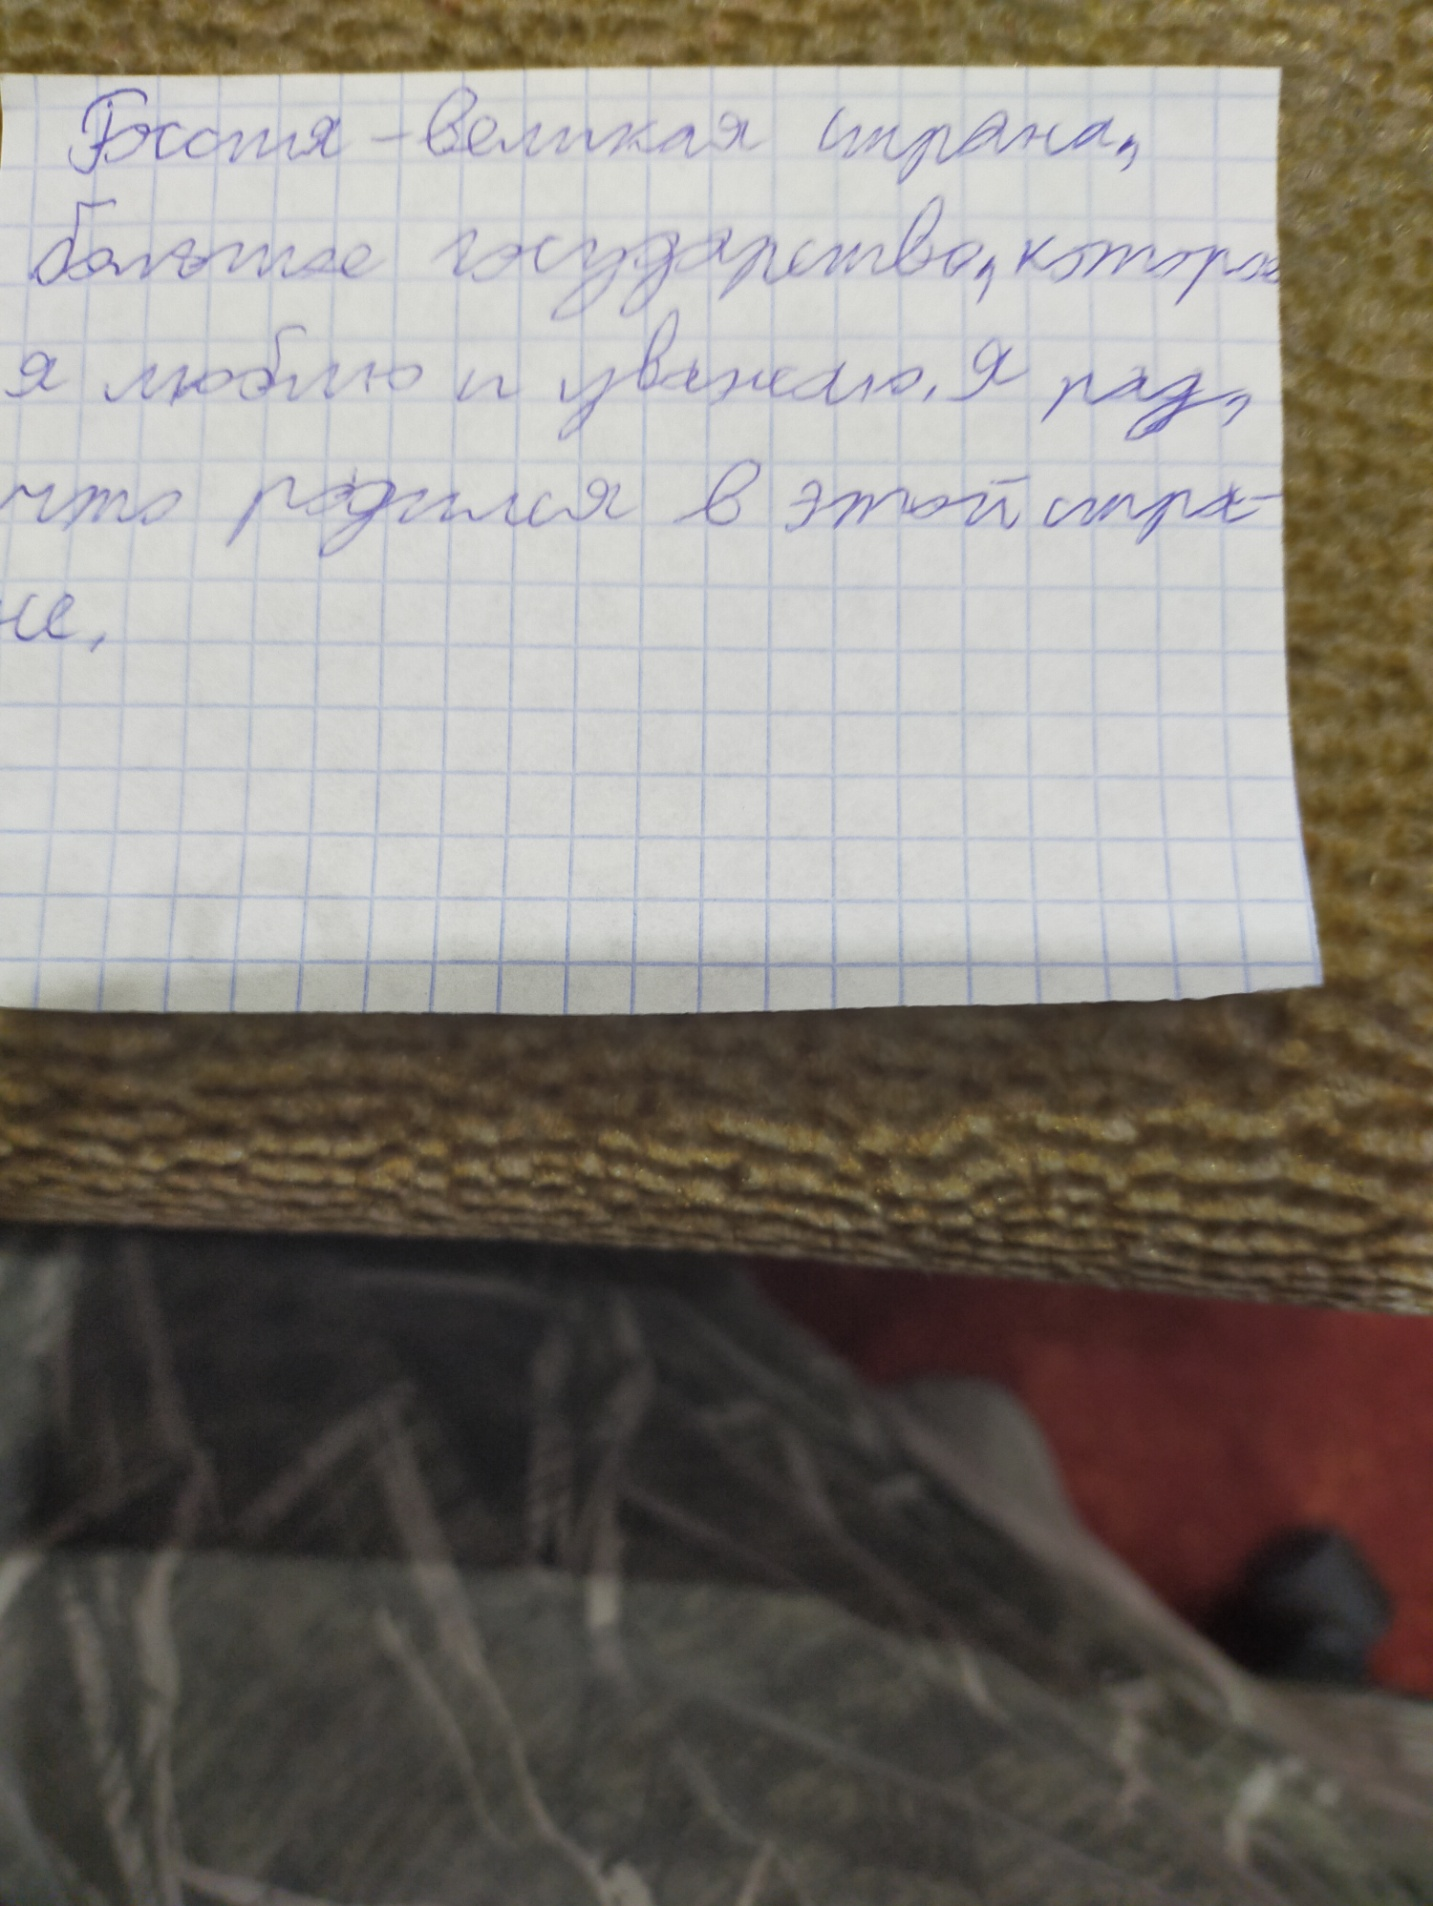 Россия - великая страна,
большое государство, которое
я люблю и уважаю. Я рад,
что родился в этой стра-
не.